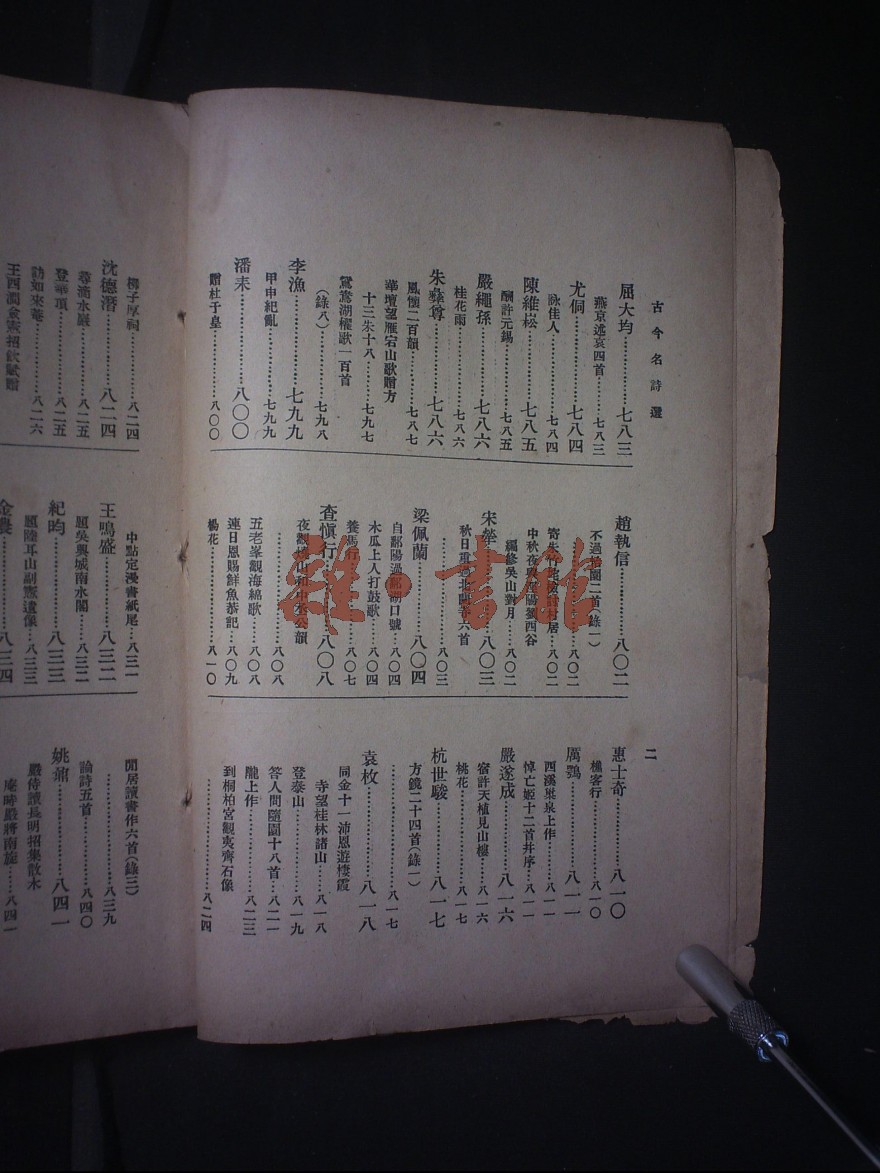 古今名詩選
屈大均…………七八三
燕京述哀四首………七八三
尤侗……………七八四
詠佳人……………七八四
陳維崧…………七八五
酬許元錫…………七八五
嚴繩孫…………七八六
桂花雨……………七八六
朱彝尊…………七八六
風懷二百韻………七八七
華壇望雁宕山歌贈方
十三朱十八………七九七
鴛鴦湖櫂歌一百首
(錄八)……………七九八
李漁……………七九九
甲申紀亂…………七九九
潘耒……………八〇〇
贈杜于皇…………八〇〇
趙執信…………八〇二
不過拾園二首(錄一)
……………八〇二
八〇二
中秋夜
劉西谷
編修吳山對月……八〇二
宋犖……………八〇三
秋日重
六首
……………八〇三
梁佩蘭…………八〇四
自鄱陽過
湖口號……八〇四
木瓜上人打鼓歌……八〇四
養馬行……………八〇七
查愼行…………八〇八
夜觀燒山和中丞公韻
……………八〇八
五老峯觀海綿歌……八〇八
連日恩賜鮮魚恭記…八〇九
楊花………………八一〇
二
惠士奇…………八一〇
樵客行……………八一〇
厲鶚……………八一一
西溪巢泉上作………八一一
悼亡姬十二首幷序…八一一
嚴遂成…………八一六
宿許天植見山樓……八一六
桃花………………八一七
杭世駿…………八一七
方鏡二十四首(錄一)
……………八一七
袁枚……………八一八
同金十一沛恩遊棲霞
寺望桂林諸山………八一八
登泰山……………八一九
答人問隨園十八首…八二一
隴上作……………八二三
到桐柏宮觀夷齊石像
……………八二四
柳子厚祠…………八二四
沈德潛…………八二四
尋滴水巖…………八二五
登華頂……………八二五
訪如來菴…………八二六
王西澗僉憲招飲賦贈
中點定漫書紙尾……八三一
王鳴盛…………八三二
題吳興城南水閣……八三二
紀昀……………八三三
題陸耳山副憲遺像…八三三
金農……………八三四
閒居讀書作六首(錄三)
……………八三九
論詩五首…………八四〇
姚鼐……………八四一
嚴侍讀長明招集散木
庵時嚴將南旋………八四一
雜·書館